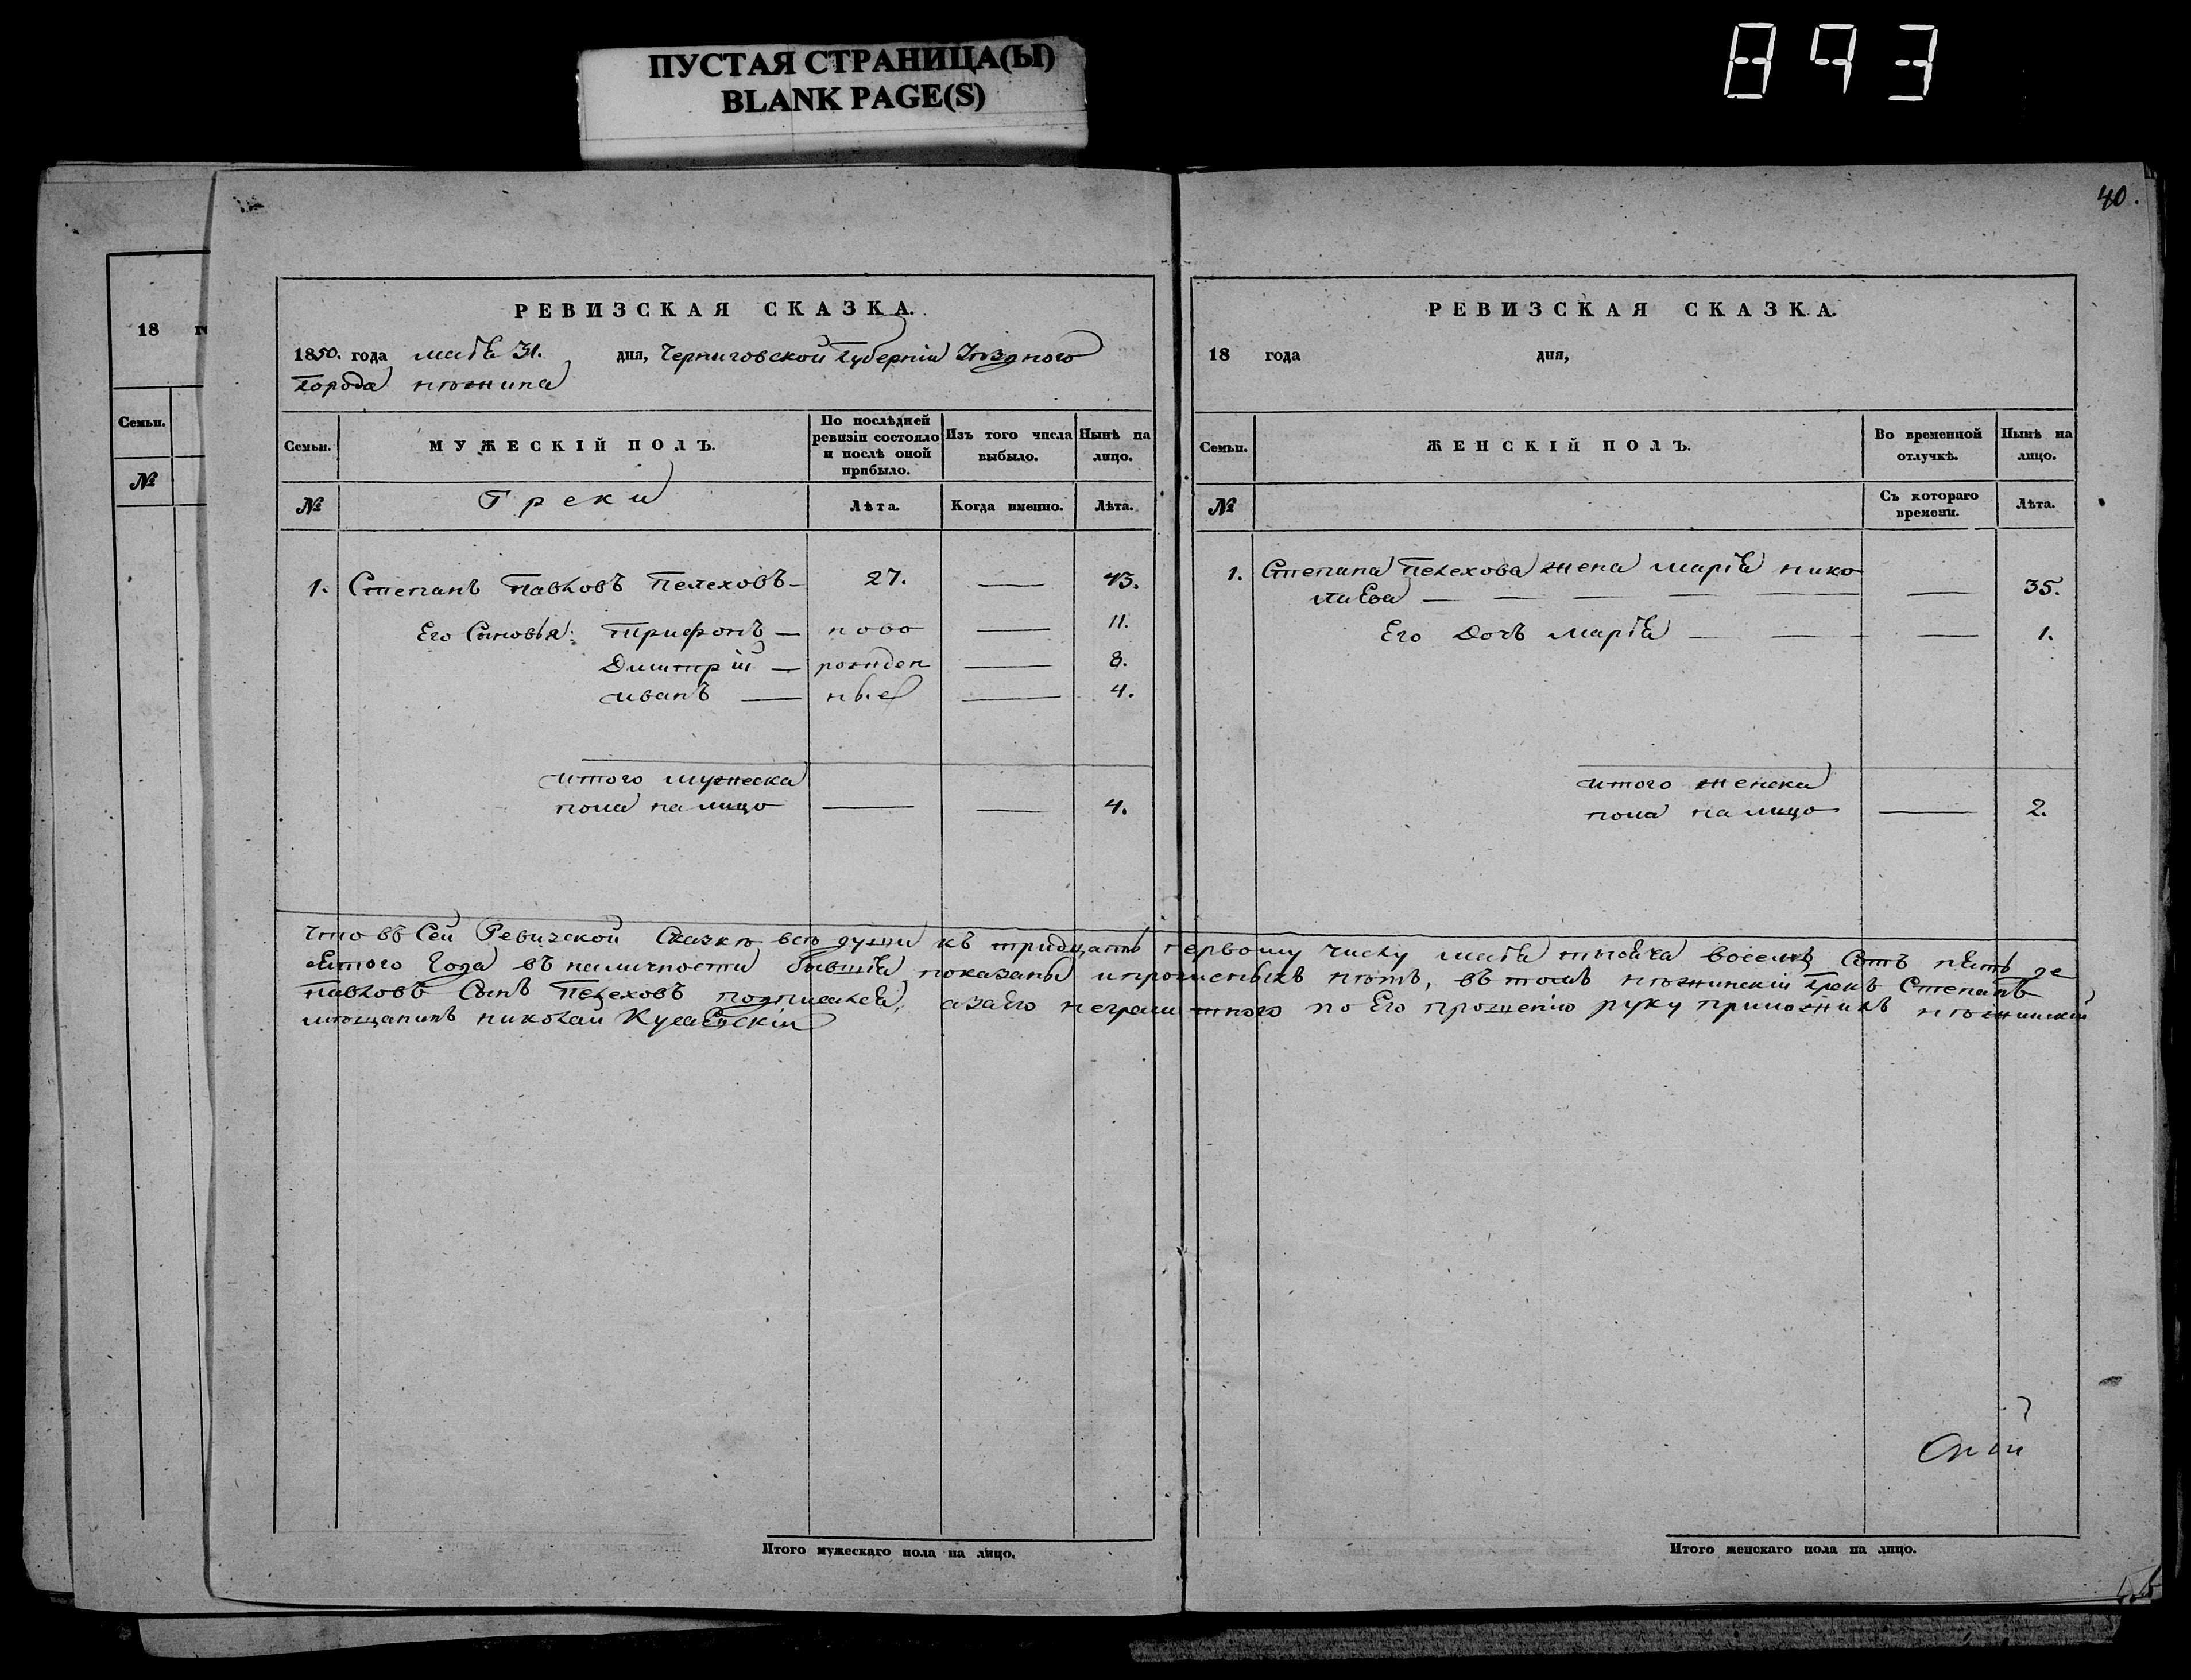 ПУСТАЯ СТРАНИЦА(Ы)
BLANK PAGE(S)
893
40.
18 го
Семьи.
№
РЕВИЗСКАЯ СКАЗКА.
1850. года маія 31. дня, Черниговской Губерніи Уѣзднаго
города нѣжина
Семьи. МУЖЕСКІЙ ПОЛЪ. По послѣдней ревизіи состояло и послѣ оной прибыло. Изъ того числа выбыло. Нынѣ на лицо.
№ Греки Лѣта. Когда именно. Лѣта.
1. Степанъ Павловъ Пелеховъ 27. — 43.
Его Сыновья: Трифонъ — ново — 11.
Димитрій — рожден — 8.
иванъ — ные — 4.
итого мужеска
пола на лицо — — 4.
РЕВИЗСКАЯ СКАЗКА.
18 года дня,
Семьи. ЖЕНСКІЙ ПОЛЪ. Во временной отлучкѣ. Нынѣ на лицо.
№ Съ котораго времени. Лѣта.
1. Степана Пелехова жена марія нико
лаева — — — — — — 35.
Его Дочъ марія — — — — 1.
итого женска
пола на лицо — 2.
Что въ Сей Ревизской Сказкѣ всѣ души къ тридцать первому числу маія тысяча восемь Сотъ пять де
сятого Года въ наличности бывшія показаны и прописныхъ нѣтъ, въ томъ нѣжинскій грекъ Степанъ
павловъ Сынъ Пелеховъ подписался, а за Его неграмотного по Его прошенію руку приложилъ нѣжинскій
мѣщанинъ николай
Итого мужескаго пола на лицо.
Итого женскаго пола на лицо.